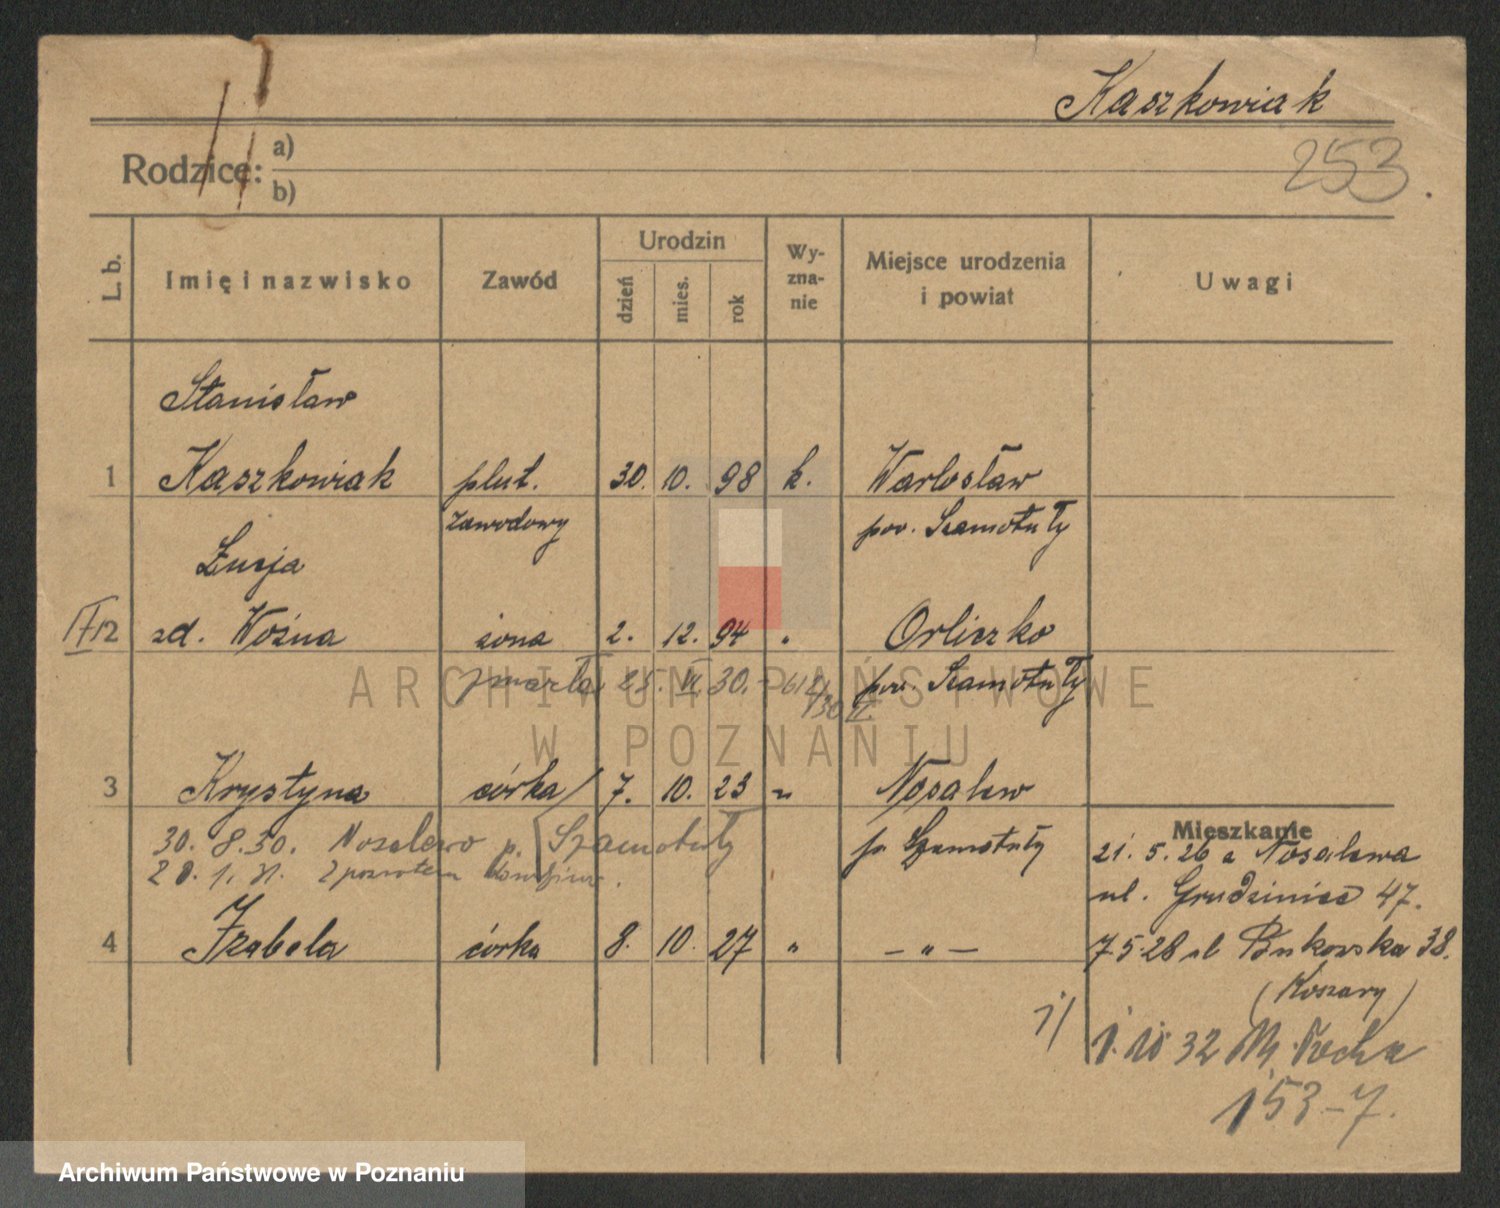 Kaszkowiak
253.
Rodzice: a)
b)
L. b.
Imię i nazwisko
Zawód
Urodzin
dzień
mies.
rok
Wy-
zna-
nie
Miejsce urodzenia
i powiat
Uwagi
Stanisław
1 Kaszkowiak plut. 30. 10. 98 k. Warłosław
zawodowy pow. Szamotuły
Łucja
2 zd. Woźna żona 2. 12. 94 " Orliczko
zmarła 25. VI. 30. pow. Szamotuły
3 Krystyna córka 7. 10. 23 " Nosalew
30. 8. 30. Nosalewo p. Szamotuły p. Szamotuły
28. 1. 31. z powrotem
4 Izabela córka 8. 10. 27 " — " —
Mieszkanie
21. 5. 26 z Nosalewa
ul. Grudzieniec 47.
7.5.28 ul Bukowska 38.
(Koszary)
1. 10 32 M. Focha
153-7.
ARCHIWUM PAŃSTWOWE
W POZNANIU
Archiwum Państwowe w Poznaniu